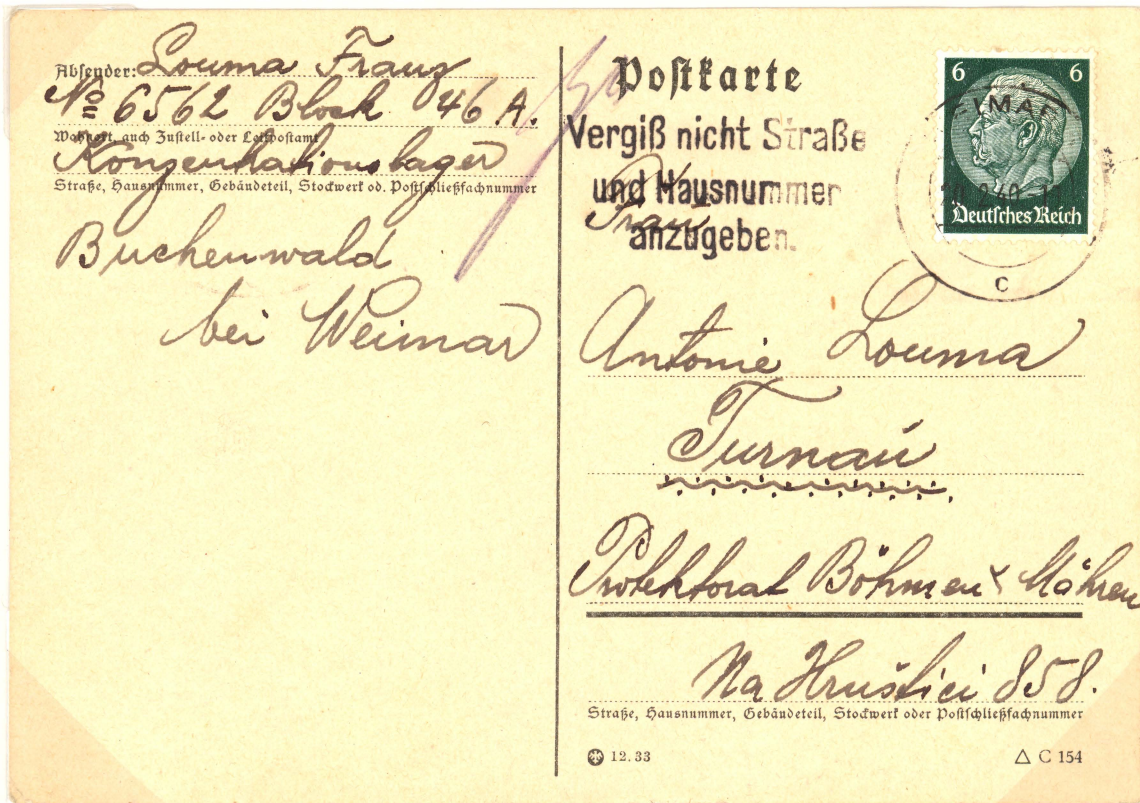 Absender: Louma Franz
No 6562 Block 46 A.
Wohnort, auch Zustell- oder Leitpostamt
Konzentrationslager
Straße, Hausnummer, Gebäudeteil, Stockwerk od. Postschließfachnummer
Buchenwald
bei Weimar
Postkarte
Vergiß nicht Straße
und Hausnummer
anzugeben.
6 6
Deutsches Reich
c
Frau
Antonie Louma
Turnau
Protektorat Böhmen Mähren
Na Hruštici 858.
Straße, Hausnummer, Gebäudeteil, Stockwerk oder Postschließfachnummer
12.33
C 154